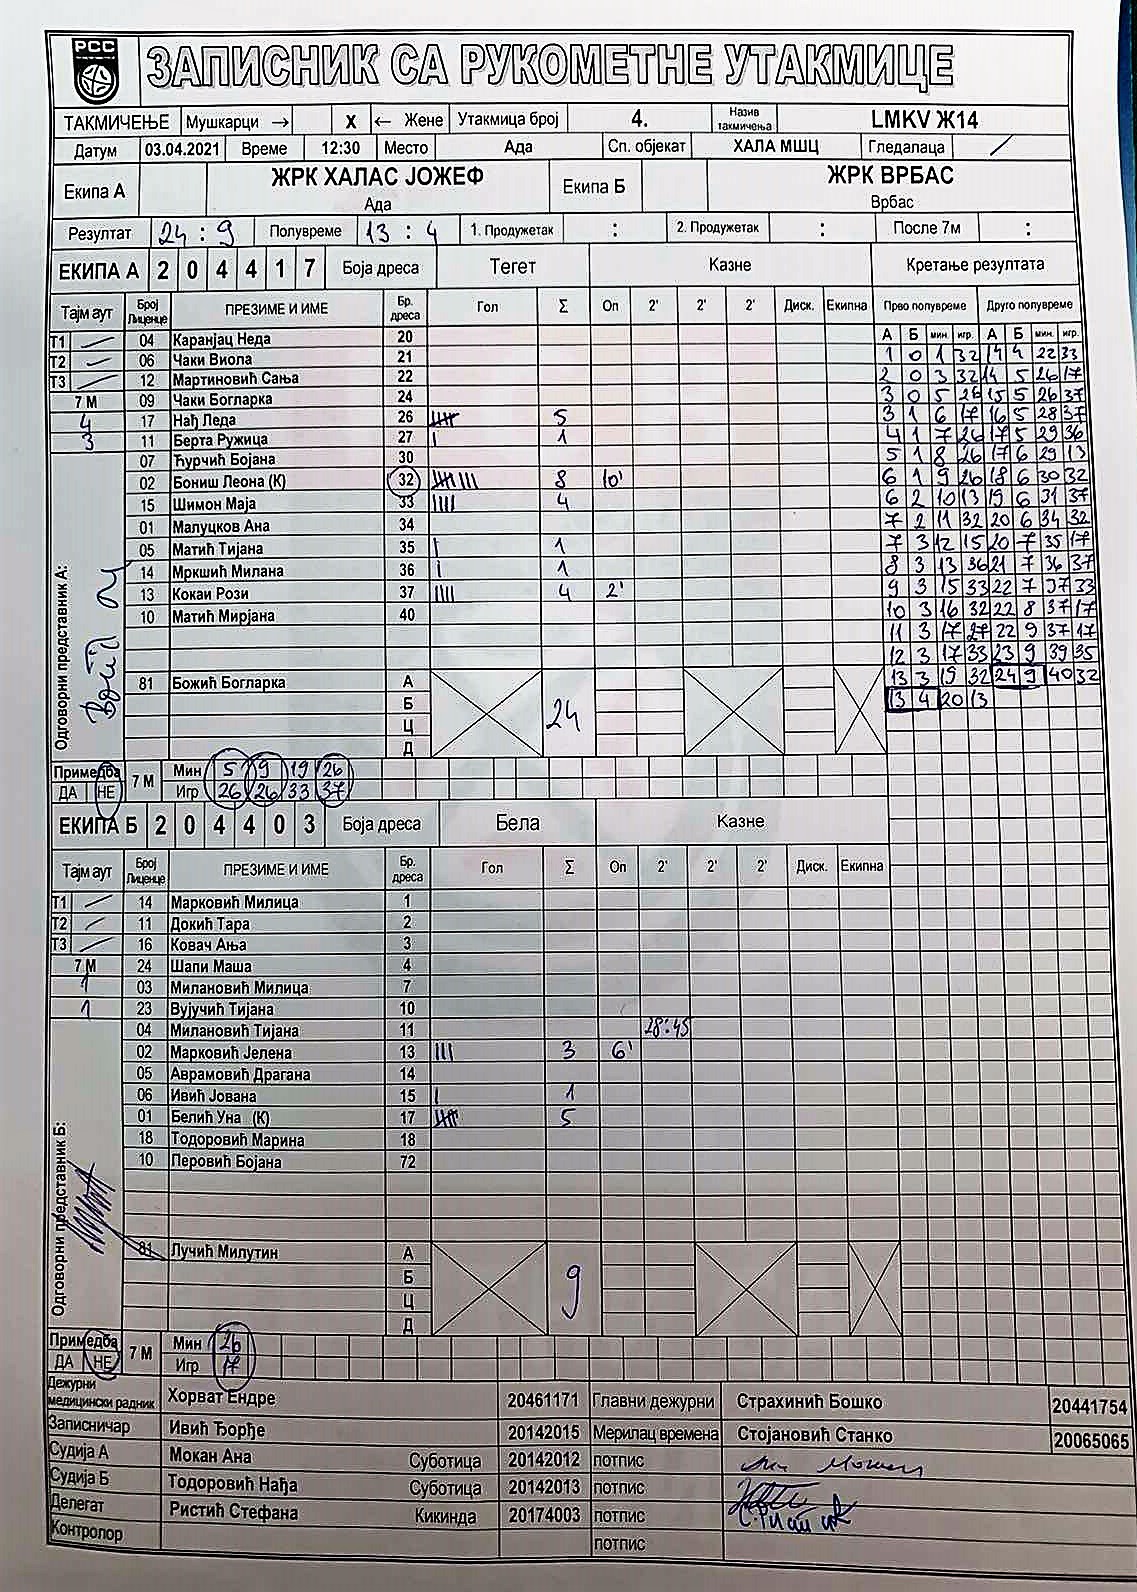 РСС
ЗАПИСНИК СА РУКОМЕТНЕ УТАКМИЦЕ
ТАКМИЧЕЊЕ Мушкарци → X ← Жене Утакмица број 4. Назив такмичења LMKV Ж14
Датум 03.04.2021 Време 12:30 Место Ада Сп. објекат ХАЛА МШЦ Гледалаца /
Екипа А ЖРК ХАЛАС ЈОЖЕФ Ада Екипа Б ЖРК ВРБАС Врбас
Резултат 24 : 9 Полувреме 13 : 4 1. Продужетак : 2. Продужетак : После 7м :
ЕКИПА А 2 0 4 4 1 7 Боја дреса Тегет Казне Кретање резултата
Тајм аут Број Лиценце ПРЕЗИМЕ И ИМЕ Бр. дреса Гол Σ Оп 2' 2' 2' Диск. Екипна Прво полувреме Друго полувреме
А Б мин. игр. А Б мин. игр.
Т1 04 Каранјац Неда 20 1 0 1 32 14 4 22 33
Т2 06 Чаки Виола 21 2 0 3 32 14 5 26 17
Т3 12 Мартиновић Сања 22 3 0 5 26 15 5 26 37
7 М 09 Чаки Богларка 24 3 1 6 17 16 5 28 37
4 17 Нађ Леда 26 5 4 1 7 26 17 5 29 36
3 11 Берта Ружица 27 1 5 1 8 26 17 6 29 13
07 Ђурчић Бојана 30 6 1 9 26 18 6 30 32
02 Бониш Леона (К) 32 8 10' 6 2 10 13 19 6 31 37
15 Шимон Маја 33 4 7 2 11 32 20 6 34 32
01 Малуцков Ана 34 7 3 12 15 20 7 35 17
05 Матић Тијана 35 1 8 3 13 36 21 7 36 37
14 Мркшић Милана 36 1 9 3 15 33 22 7 37 33
13 Кокаи Рози 37 4 2' 10 3 16 32 22 8 37 17
10 Матић Мирјана 40 11 3 17 27 22 9 37 17
12 3 17 33 23 9 39 35
13 3 19 32 24 9 40 32
13 4 20 13
Одговорни представник А:
81 Божић Богларка А
Б
Ц
Д
24
Примедба ДА НЕ 7 М
Мин 5 9 19 26
Игр 26 26 33 37
ЕКИПА Б 2 0 4 4 0 3 Боја дреса Бела Казне
Тајм аут Број Лиценце ПРЕЗИМЕ И ИМЕ Бр. дреса Гол Σ Оп 2' 2' 2' Диск. Екипна
Т1 14 Марковић Милица 1
Т2 11 Докић Тара 2
Т3 16 Ковач Ања 3
7 М 24 Шапи Маша 4
1 03 Милановић Милица 7
1 23 Вујучић Тијана 10
04 Милановић Тијана 11 28:45
02 Марковић Јелена 13 3 6'
05 Аврамовић Драгана 14
06 Ивић Јована 15 1
01 Белић Уна (К) 17 5
18 Тодоровић Марина 18
10 Перовић Бојана 72
Одговорни представник Б:
81 Лучић Милутин А
Б
Ц
Д
9
Примедба ДА НЕ 7 М
Мин 26
Игр 17
Дежурни медицински радник Хорват Ендре 20461171 Главни дежурни Страхинић Бошко 20441754
Записничар Ивић Ђорђе 20142015 Мерилац времена Стојановић Станко 20065065
Судија А Мокан Ана Суботица 20142012 потпис
Судија Б Тодоровић Нађа Суботица 20142013 потпис
Делегат Ристић Стефана Кикинда 20174003 потпис
Контролор потпис